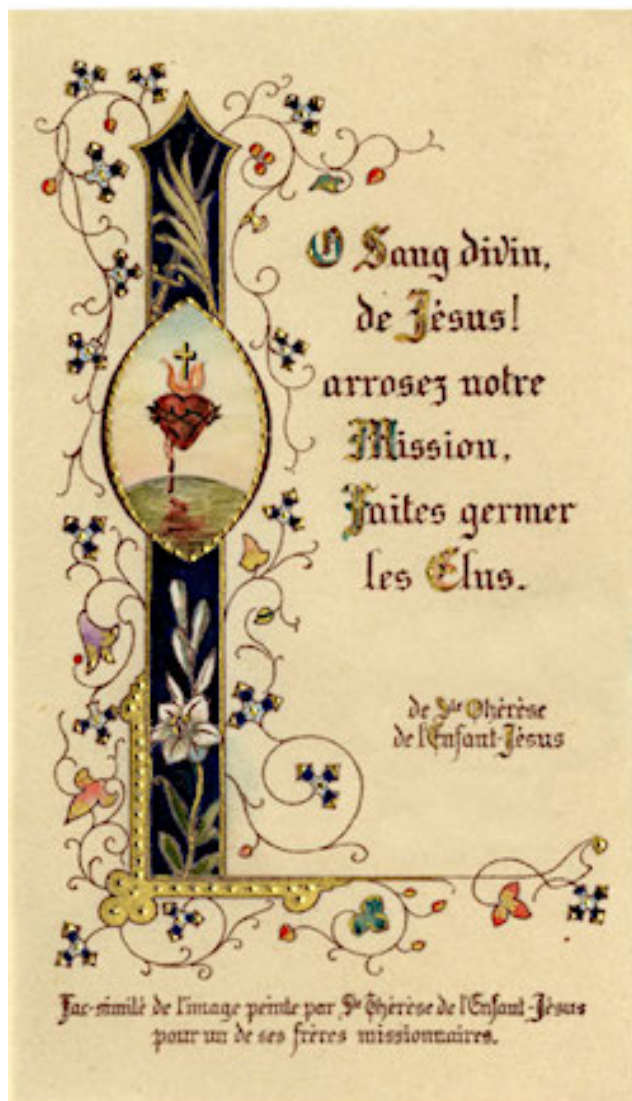 O Sang divin,
de Jésus!
arrosez notre
Mission,
Faites germer
les Elus.
de Ste Thérèse
de l'Enfant-Jésus
Fac-similé de l'image peinte par Ste Thérèse de l'Enfant-Jésus
pour un de ses frères missionnaires.